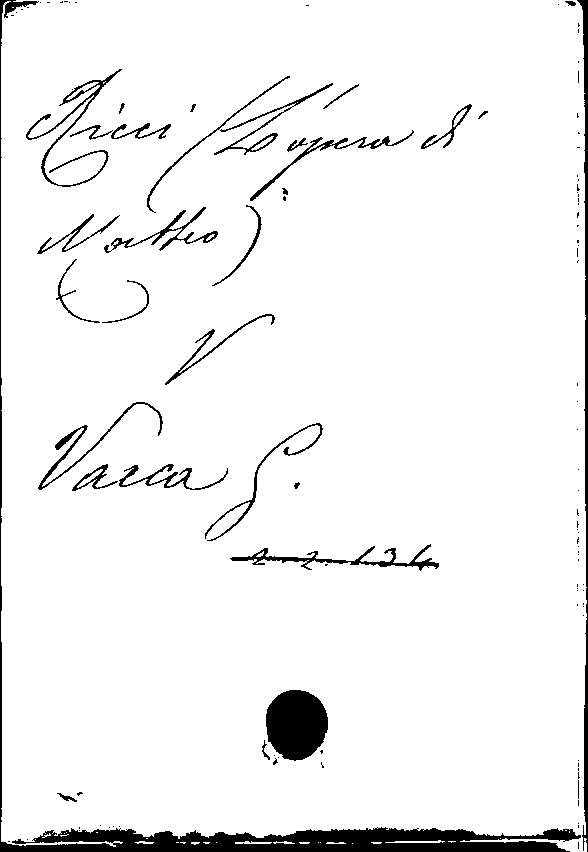 Ricci (L'opera di
Matteo)
V
Vacca G.
2. 2. 134